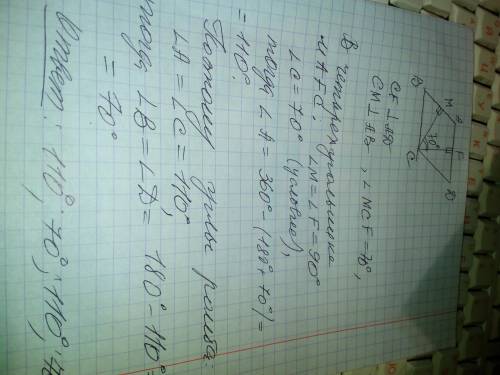 B
M
A
F
70°
C
D
CF ⊥ AD
CM ⊥ AB, ∠MCF=70°,
В четырехугольнике
MAFC, ∠M=∠F=90°
∠C=70° (условие),
тогда ∠A = 360°-(180°+70°)=
= 110°.
Поэтому углы ромба:
∠A = ∠C = 110°,
тогда ∠B = ∠D = 180°-110°=
= 70°
Ответ: 110°; 70°; 110°; 70